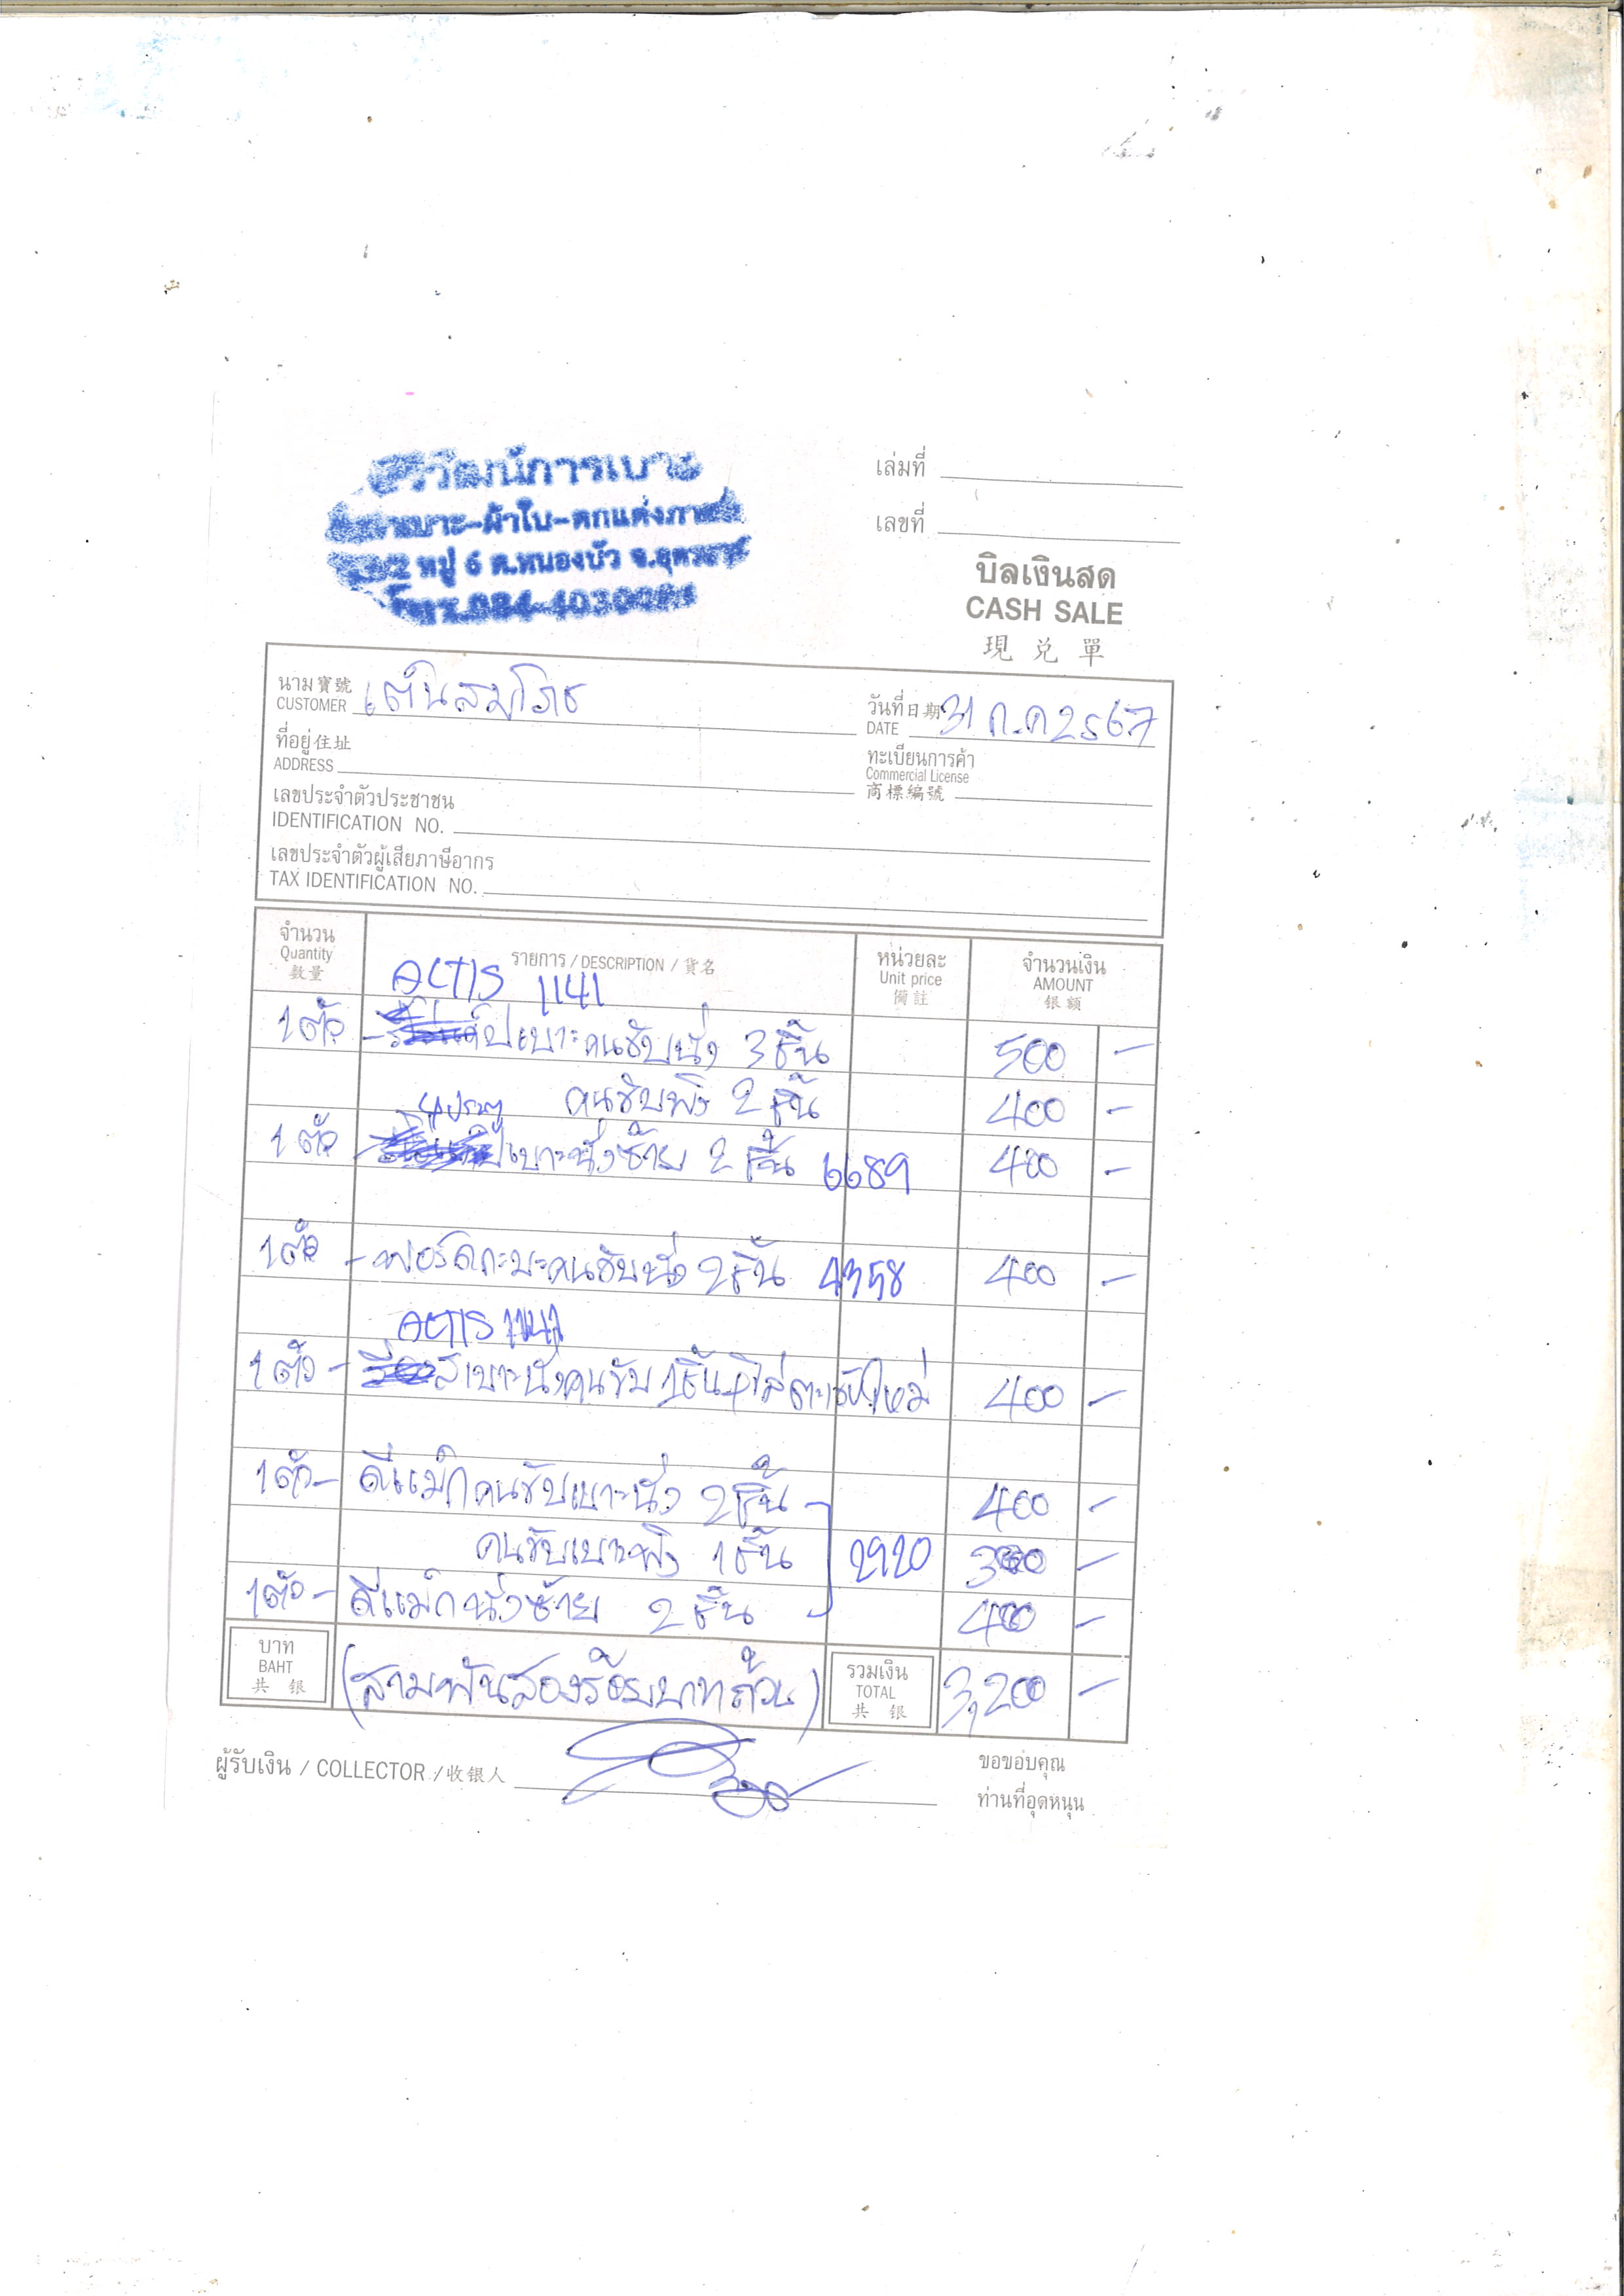 วัฒน์การเบาะ
เบาะ-ผ้าใบ-ตกแต่งภายใน
หมู่ 6 ต.หนองบัว จ.อุดรธานี
โทร.084-
เล่มที่
เลขที่
บิลเงินสด
CASH SALE
現兌單
นาม寶號 เต๋นสมโภช
CUSTOMER
วันที่日期 31 ก.ค 2567
DATE
ที่อยู่住址
ADDRESS
ทะเบียนการค้า
Commercial License
商標編號
เลขประจำตัวประชาชน
IDENTIFICATION NO.
เลขประจำตัวผู้เสียภาษีอากร
TAX IDENTIFICATION NO.
จำนวน รายการ / DESCRIPTION / 貨名 หน่วยละ จำนวนเงิน
Quantity Unit price AMOUNT
數量 備註 銀額
ACTIS 1141
1 ตัว - เบาะคนขับนั่ง 3 ชิ้น 500 -
คนขับพิง 2 ชิ้น 400 -
4ประตู
1 ตัว เบาะนั่งซ้าย 2 ชิ้น 6689 400 -
1 ตัว - ฟอร์ดกะบะคนขับนั่ง 2 ชิ้น 4358 400 -
ACTIS 1141
1 ตัว - เบาะนั่งคนขับ 1 ชิ้น + ใส่ตะเข็บใหม่ 400 -
1 ตัว - ดีแม็กคนขับเบาะนั่ง 2 ชิ้น 400 -
คนขับเบาะพิง 1 ชิ้น 2920 300 -
1 ตัว - ดีแม็กนั่งซ้าย 2 ชิ้น 400 -
บาท (สามพันสองร้อยบาทถ้วน) รวมเงิน 3,200 -
BAHT TOTAL
共銀 共銀
ผู้รับเงิน / COLLECTOR / 收银人
ขอขอบคุณ
ท่านที่อุดหนุน